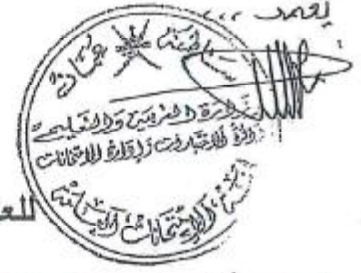 يعتمد ،،،
سلطنة عمان
وزارة التربية والتعليم
دائرة الاختبارات وإدارة الامتحانات
للعا